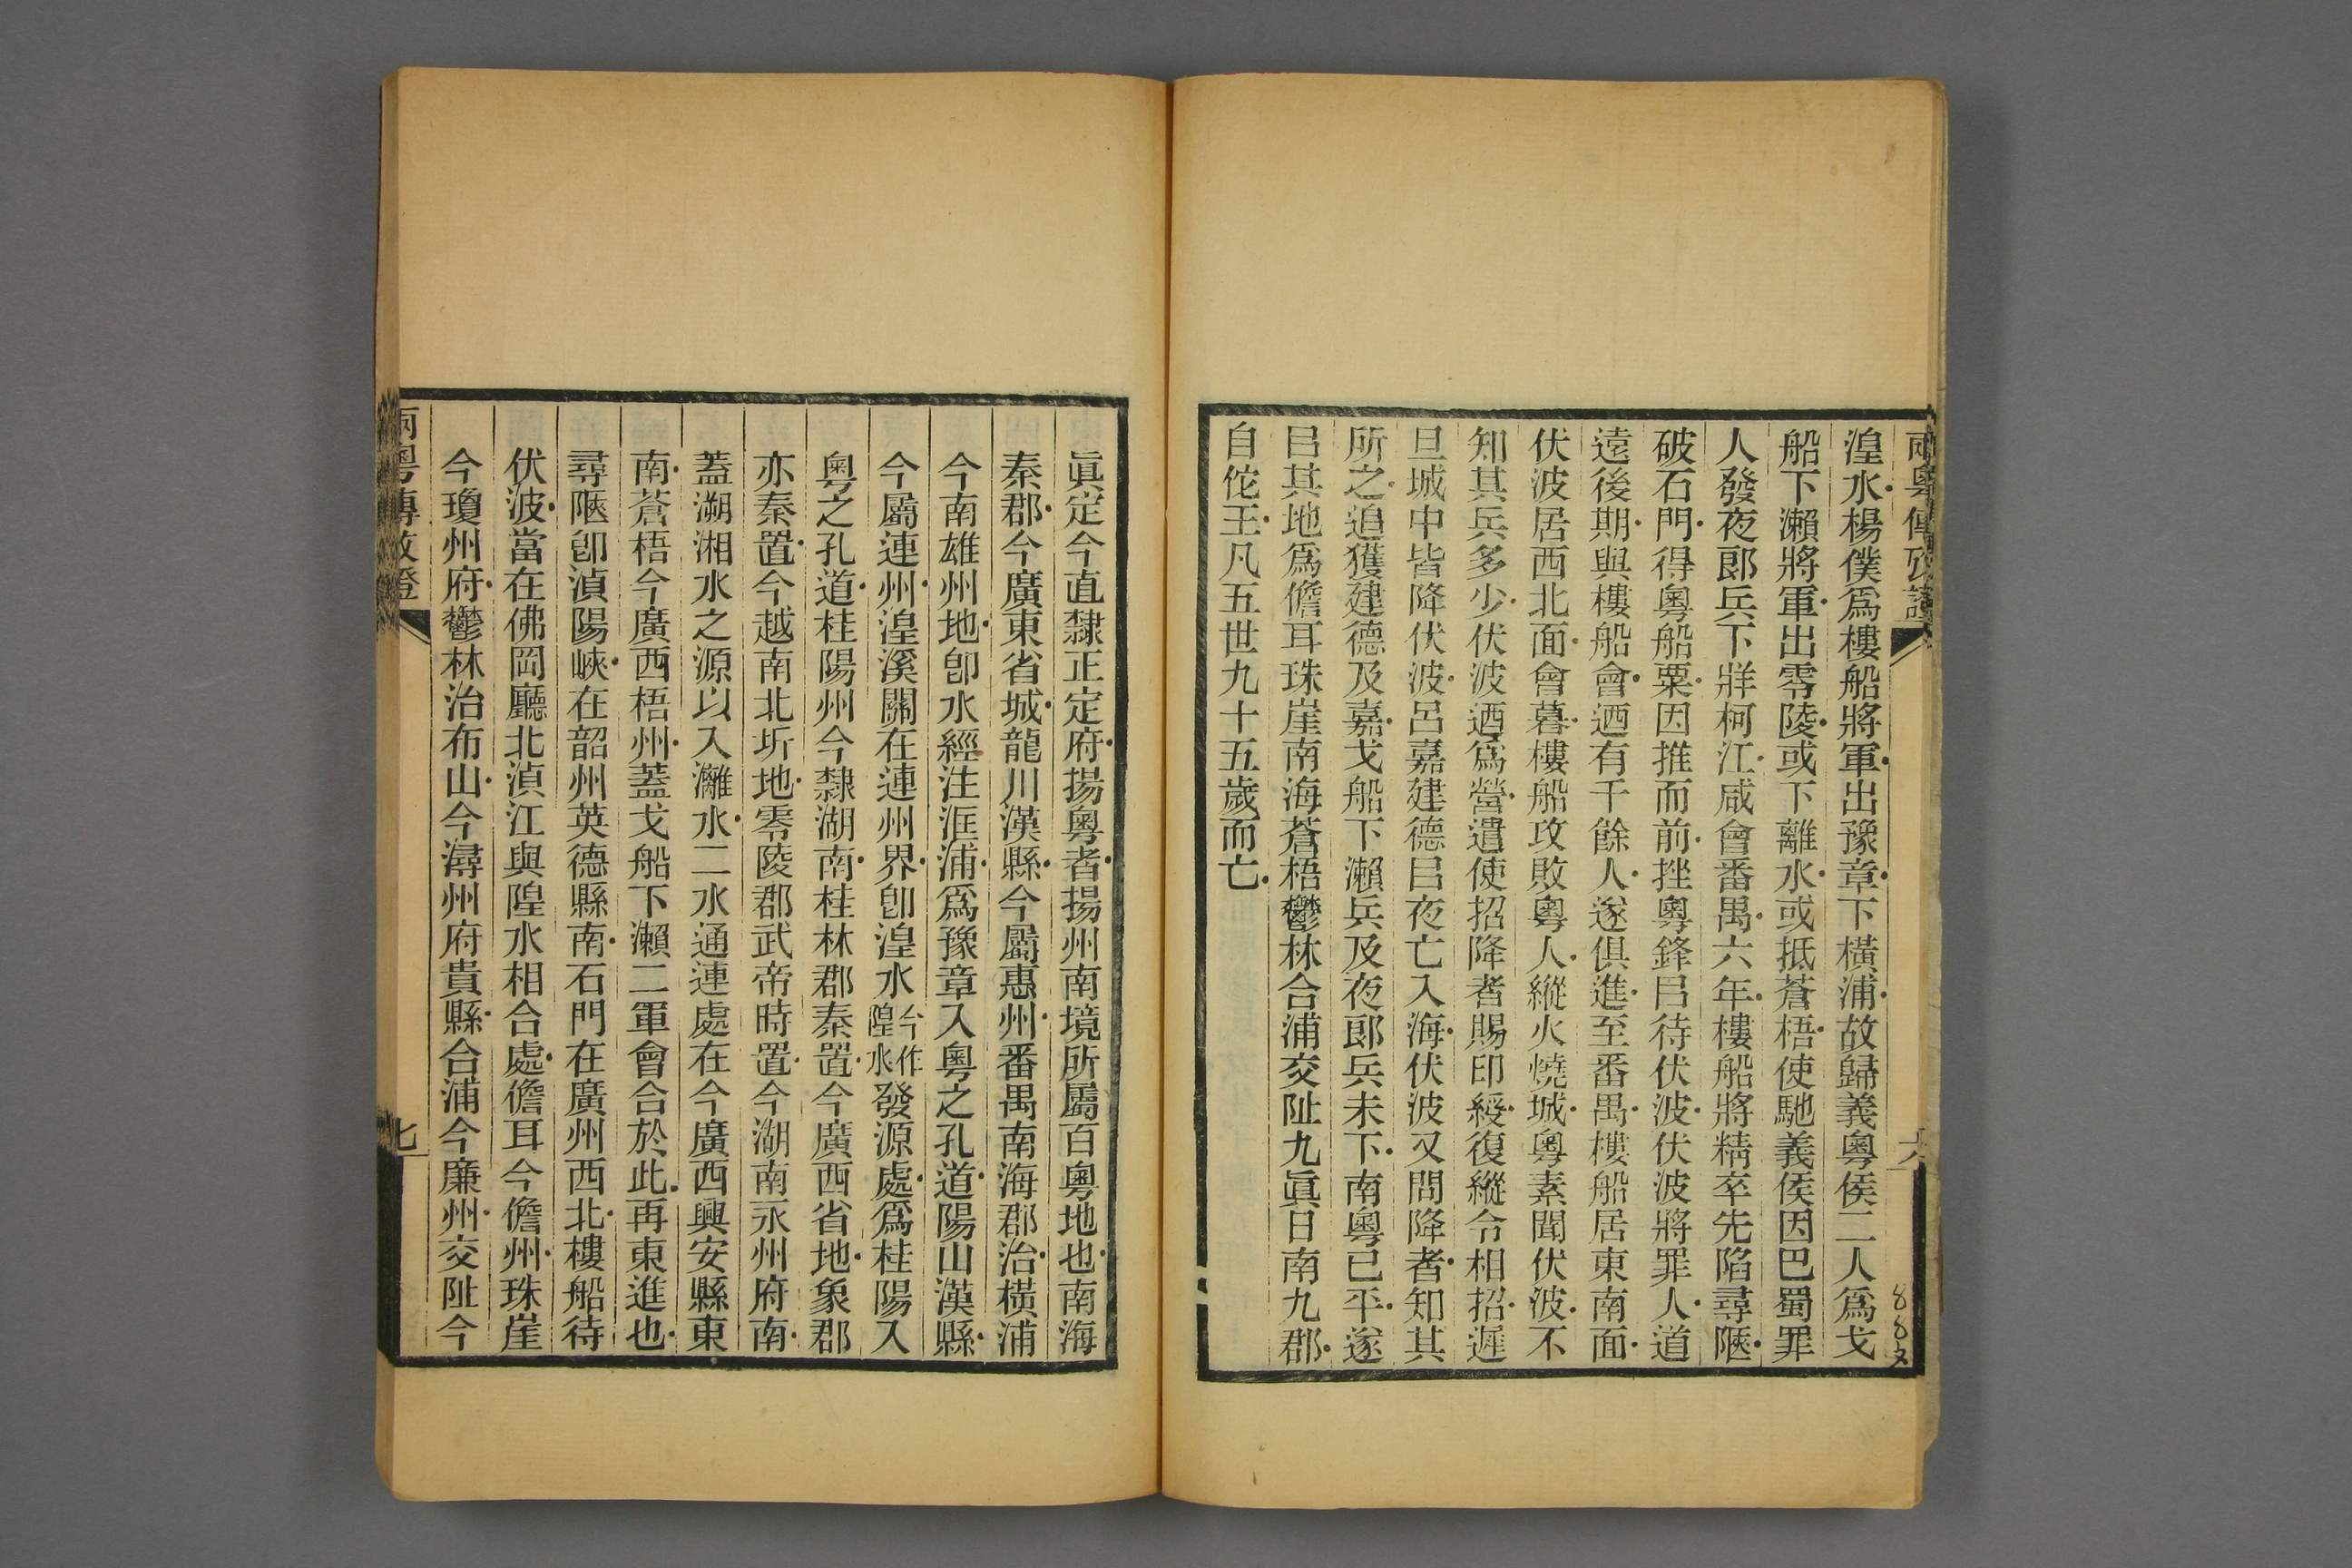 兩粵傳攷證
湟水楊僕爲樓船將軍出豫章下橫浦故歸義粵侯二人爲戈
船下瀨將軍出零陵或下離水或抵蒼梧使馳義侯因巴蜀罪
人發夜郞兵下牂柯江咸會番禺六年樓船將精卒先陷尋陿
破石門得粵船粟因推而前挫粵鋒㠯待伏波伏波將罪人道
遠後期與樓船會迺有千餘人遂俱進至番禺樓船居東南面
伏波居西北面會暮樓船攻敗粵人縱火燒城粵素聞伏波不
知其兵多少伏波迺爲營遣使招降者賜印綬復縱令相招遲
旦城中皆降伏波呂嘉建德㠯夜亡入海伏波又問降者知其
所之追獲建德及嘉戈船下瀨兵及夜郞兵未下南粵已平遂
㠯其地爲儋耳珠崖南海蒼梧鬱林合浦交阯九眞日南九郡
自佗王凡五世九十五歲而亡
六
88又
眞定今直隸正定府揚粵者揚州南境所屬百粵地也南海
秦郡今廣東省城龍川漢縣今屬惠州番禺南海郡治橫浦
今南雄州地卽水經注洭浦爲豫章入粵之孔道陽山漢縣
今屬連州湟溪關在連州界卽湟水今作湟水發源處爲桂陽入
粵之孔道桂陽州今隸湖南桂林郡秦置今廣西省地象郡
亦秦置今越南北圻地零陵郡武帝時置今湖南永州府南
蓋溯湘水之源以入灕水二水通連處在今廣西興安縣東
南蒼梧今廣西梧州蓋戈船下瀨二軍會合於此再東進也
尋陿卽湞陽峽在韶州英德縣南石門在廣州西北樓船待
伏波當在佛岡廳北湞江與湟水相合處儋耳今儋州珠崖
今瓊州府鬱林治布山今潯州府貴縣合浦今廉州交阯今
兩粵傳攷證
七